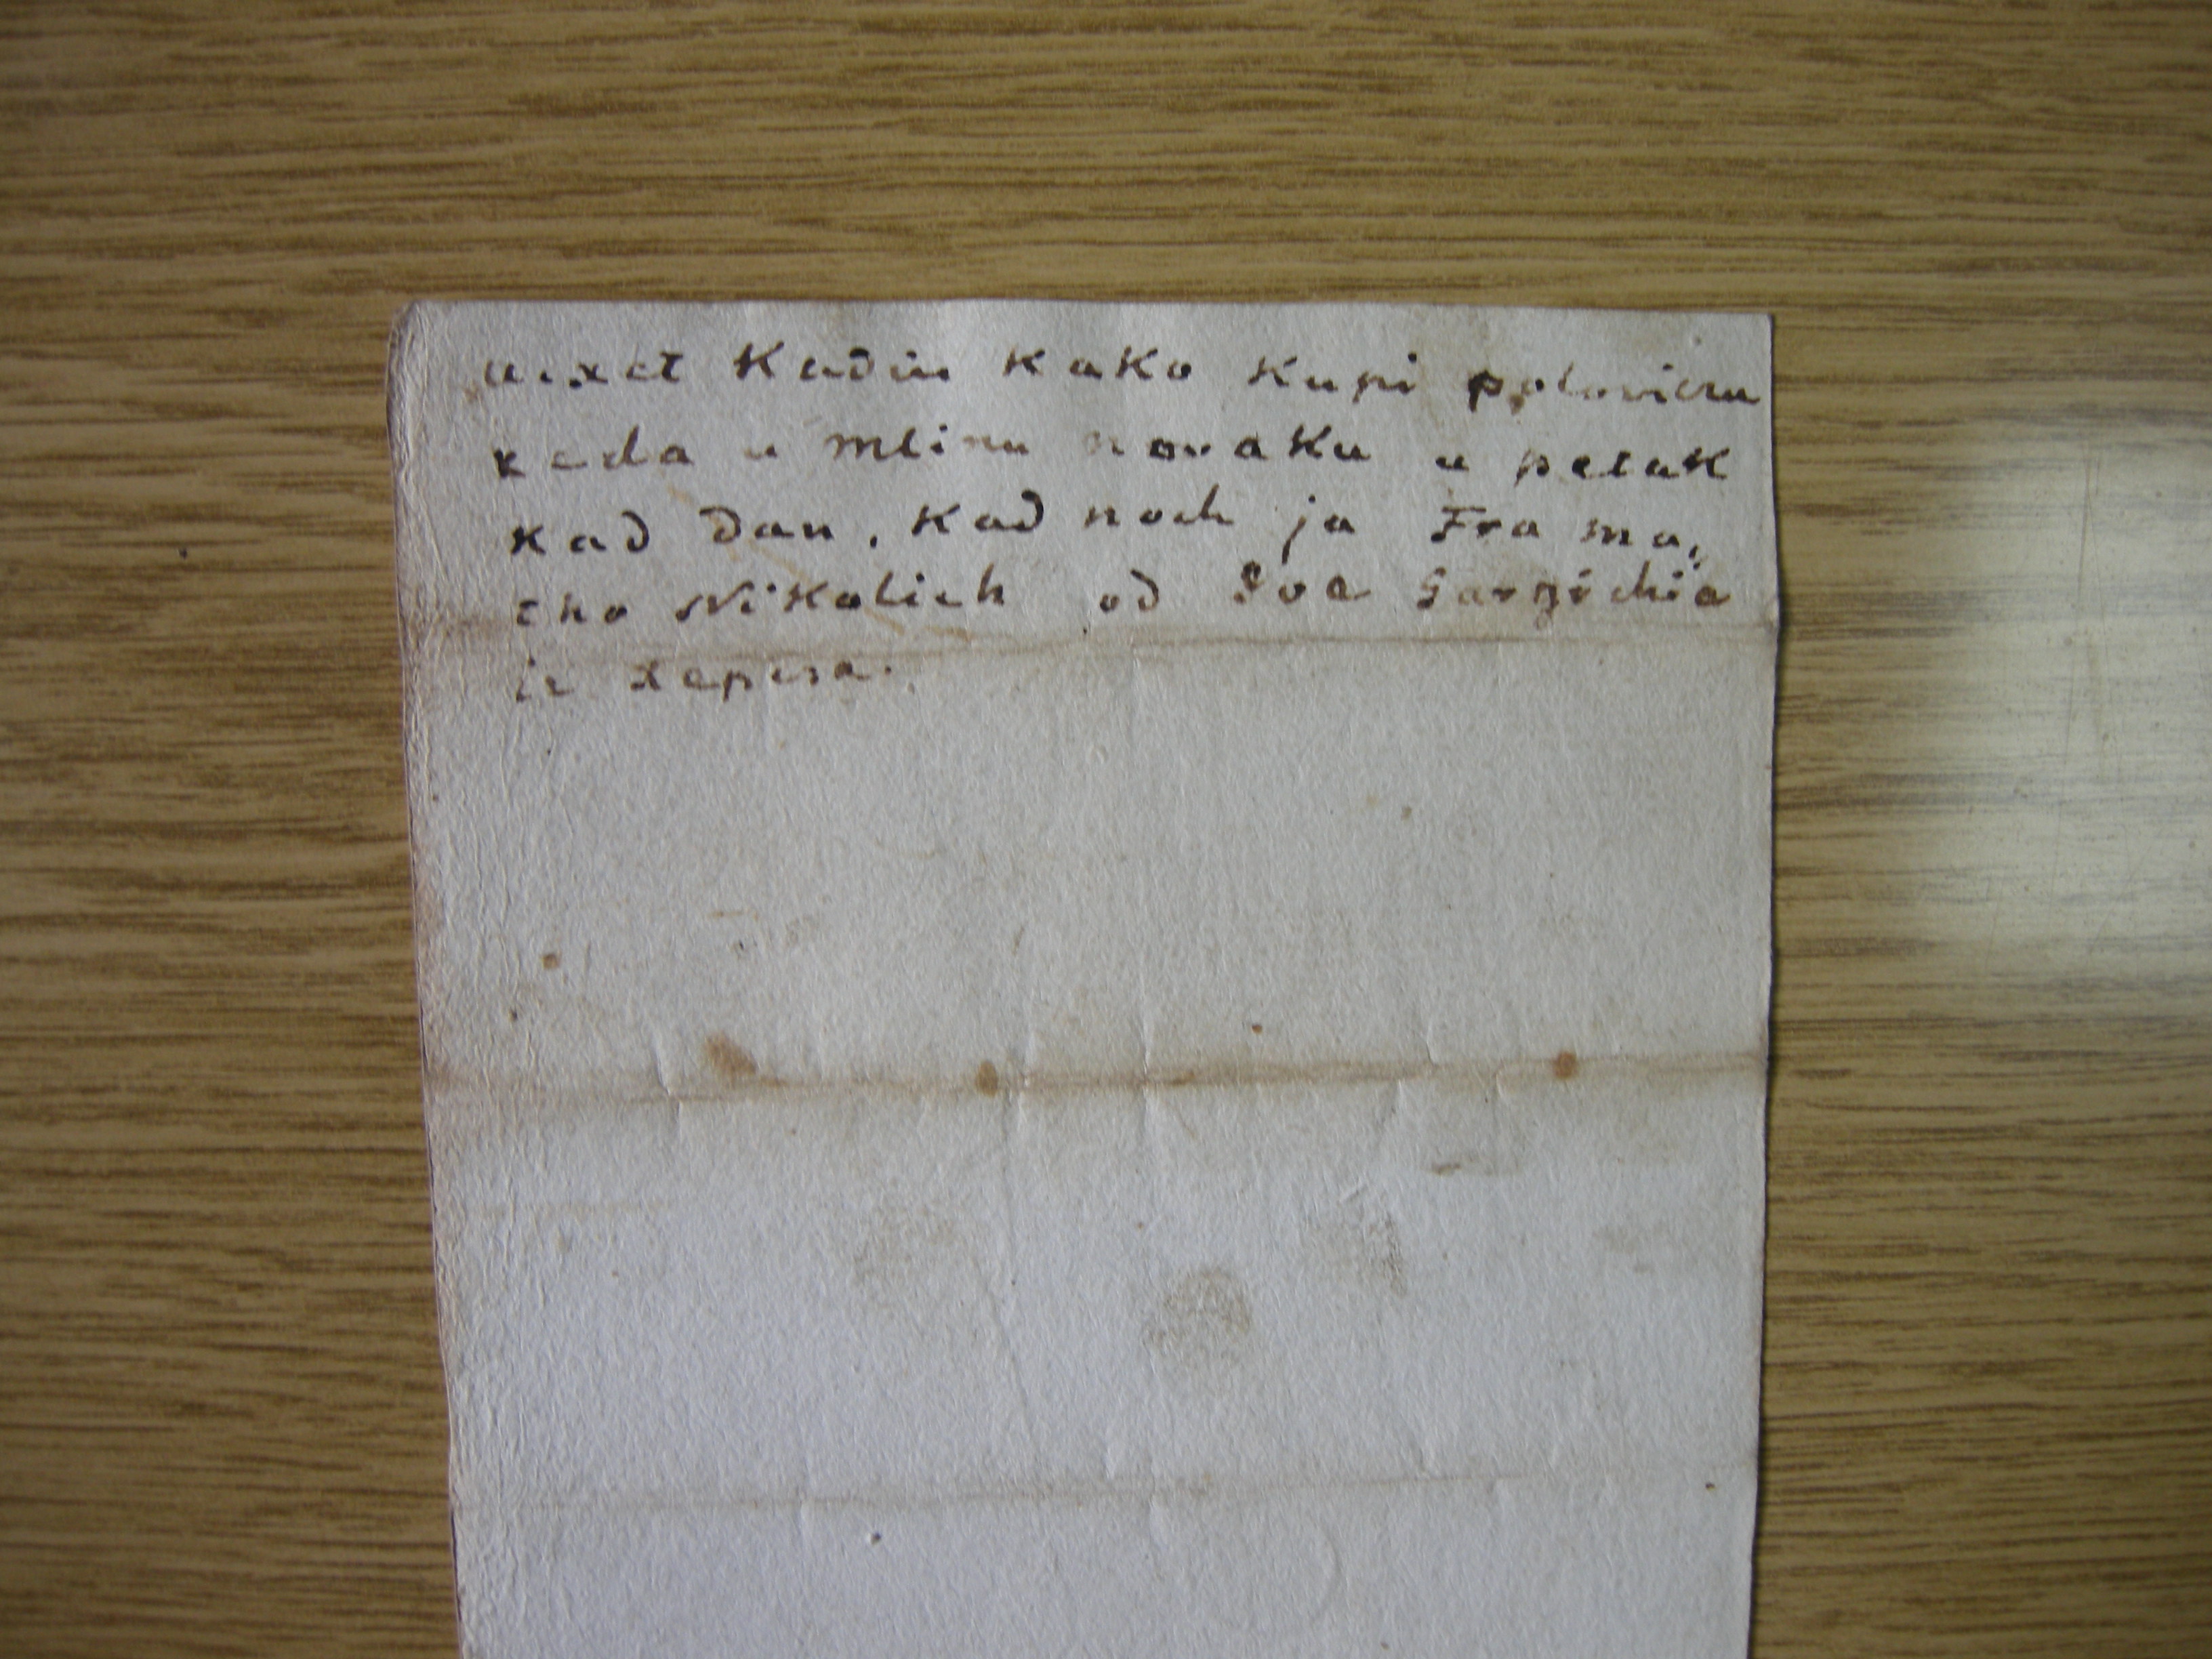 uixet Kadiu kako Kupi polovicru
reda u mlinu novaku u petak
kad dan, kad noch ja Fra ma„
tho Nikolich od Ive Garzichia
ir xepera.